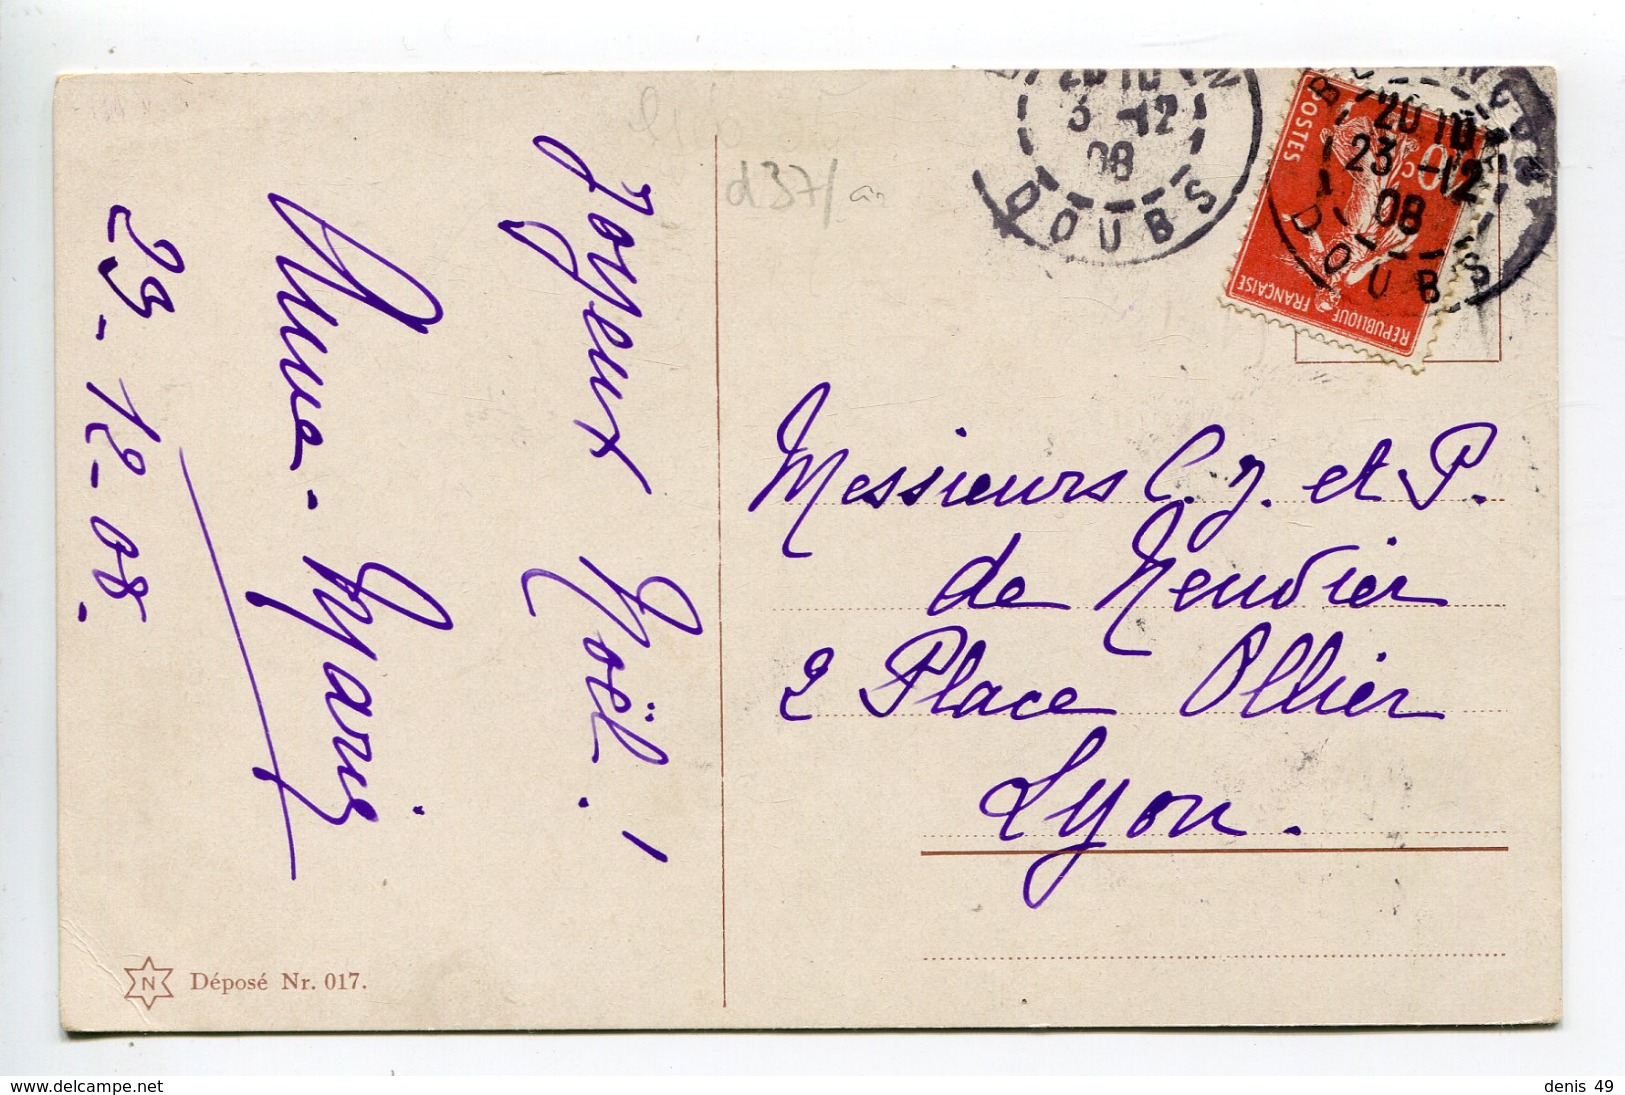 Joyeux Noël !
Anna - Marie.
23 - 12 - 08.
Messieurs C. J. et P.
de Neuvier
2 Place Ollier
Lyon.
20 10
3 -12
08
DOUBS
20 10
23 -12
08
DOUBS
POSTES
10 c
REPUBLIQUE FRANÇAISE
d37/
N
Déposé Nr. 017.
www.delcampe.net
denis 49